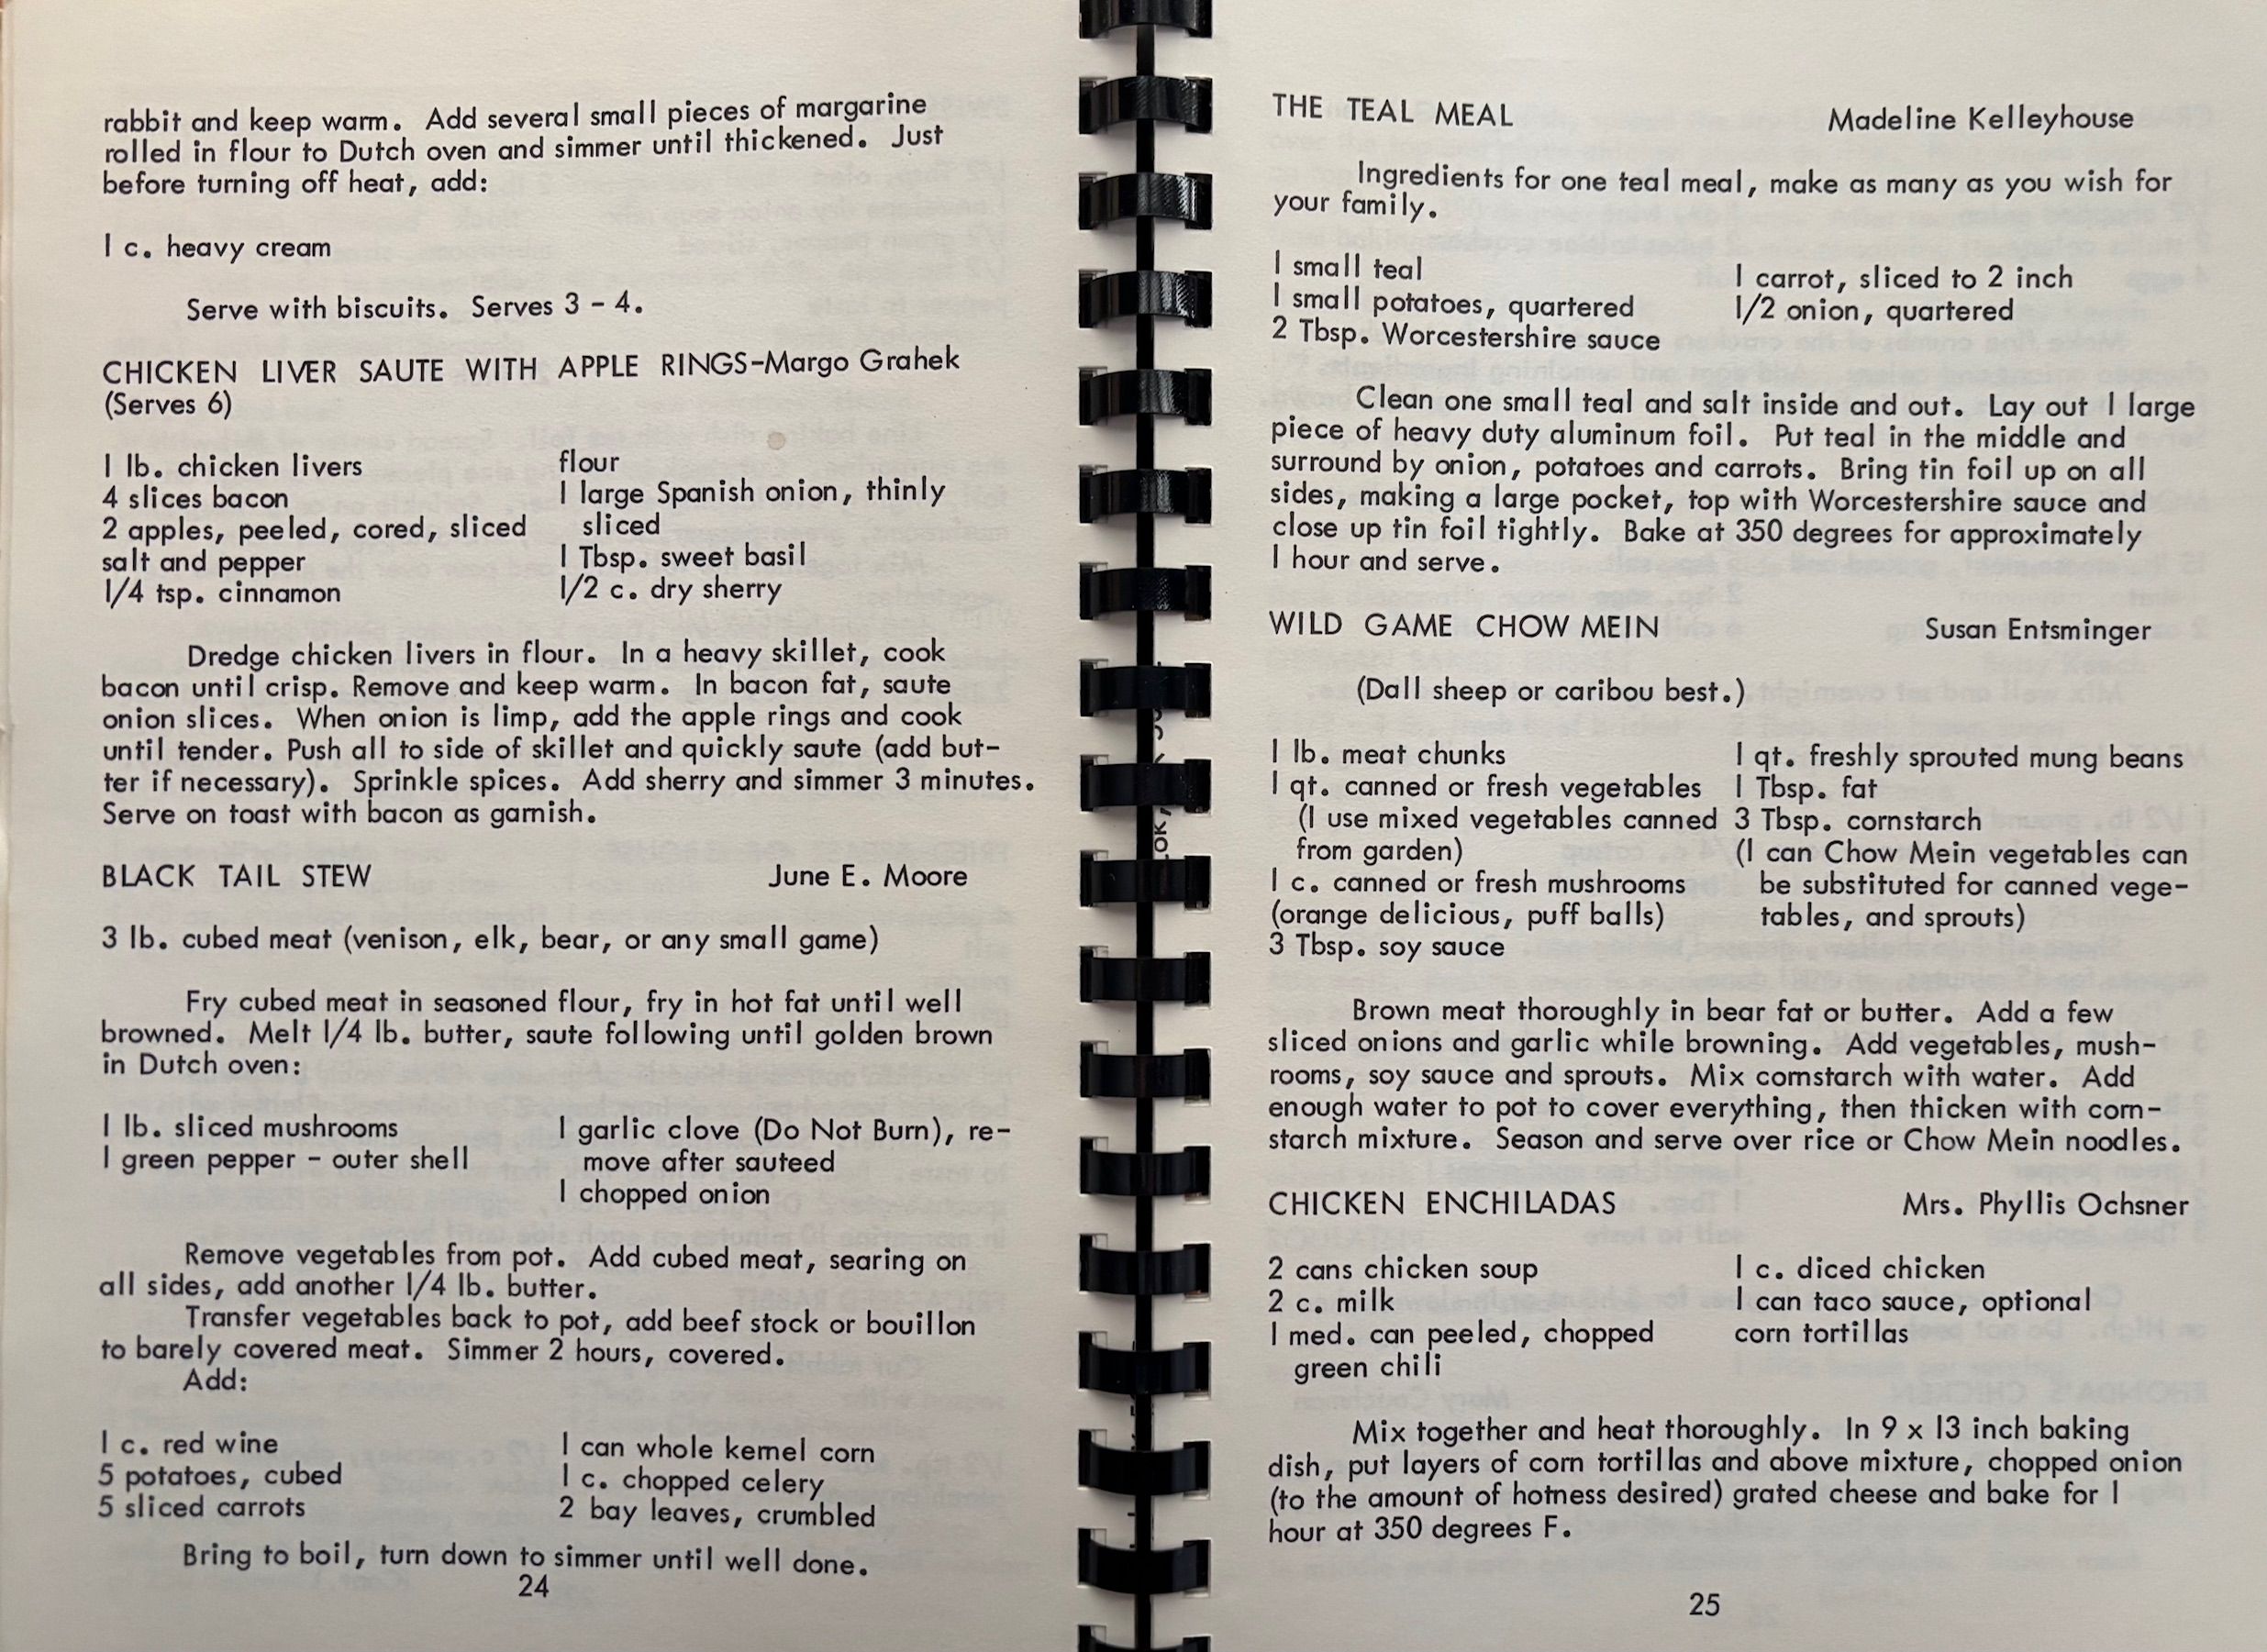 rabbit and keep warm. Add several small pieces of margarine
rolled in flour to Dutch oven and simmer until thickened. Just
before turning off heat, add:
1 c. heavy cream
Serve with biscuits. Serves 3 - 4.
CHICKEN LIVER SAUTE WITH APPLE RINGS-Margo Grahek
(Serves 6)
1 lb. chicken livers
4 slices bacon
2 apples, peeled, cored, sliced
salt and pepper
1/4 tsp. cinnamon
flour
1 large Spanish onion, thinly
sliced
1 Tbsp. sweet basil
1/2 c. dry sherry
Dredge chicken livers in flour. In a heavy skillet, cook
bacon until crisp. Remove and keep warm. In bacon fat, saute
onion slices. When onion is limp, add the apple rings and cook
until tender. Push all to side of skillet and quickly saute (add but-
ter if necessary). Sprinkle spices. Add sherry and simmer 3 minutes.
Serve on toast with bacon as garnish.
BLACK TAIL STEW June E. Moore
3 lb. cubed meat (venison, elk, bear, or any small game)
Fry cubed meat in seasoned flour, fry in hot fat until well
browned. Melt 1/4 lb. butter, saute following until golden brown
in Dutch oven:
1 lb. sliced mushrooms
1 green pepper - outer shell
1 garlic clove (Do Not Burn), re-
move after sauteed
1 chopped onion
Remove vegetables from pot. Add cubed meat, searing on
all sides, add another 1/4 lb. butter.
Transfer vegetables back to pot, add beef stock or bouillon
to barely covered meat. Simmer 2 hours, covered.
Add:
1 c. red wine
5 potatoes, cubed
5 sliced carrots
1 can whole kernel corn
1 c. chopped celery
2 bay leaves, crumbled
Bring to boil, turn down to simmer until well done.
24
THE TEAL MEAL Madeline Kelleyhouse
Ingredients for one teal meal, make as many as you wish for
your family.
1 small teal
1 small potatoes, quartered
2 Tbsp. Worcestershire sauce
1 carrot, sliced to 2 inch
1/2 onion, quartered
Clean one small teal and salt inside and out. Lay out 1 large
piece of heavy duty aluminum foil. Put teal in the middle and
surround by onion, potatoes and carrots. Bring tin foil up on all
sides, making a large pocket, top with Worcestershire sauce and
close up tin foil tightly. Bake at 350 degrees for approximately
1 hour and serve.
WILD GAME CHOW MEIN Susan Entsminger
(Dall sheep or caribou best.)
1 lb. meat chunks
1 qt. canned or fresh vegetables
(I use mixed vegetables canned
from garden)
1 c. canned or fresh mushrooms
(orange delicious, puff balls)
3 Tbsp. soy sauce
1 qt. freshly sprouted mung beans
1 Tbsp. fat
3 Tbsp. cornstarch
(1 can Chow Mein vegetables can
be substituted for canned vege-
tables, and sprouts)
Brown meat thoroughly in bear fat or butter. Add a few
sliced onions and garlic while browning. Add vegetables, mush-
rooms, soy sauce and sprouts. Mix cornstarch with water. Add
enough water to pot to cover everything, then thicken with corn-
starch mixture. Season and serve over rice or Chow Mein noodles.
CHICKEN ENCHILADAS Mrs. Phyllis Ochsner
2 cans chicken soup
2 c. milk
1 med. can peeled, chopped
green chili
1 c. diced chicken
1 can taco sauce, optional
corn tortillas
Mix together and heat thoroughly. In 9 x 13 inch baking
dish, put layers of corn tortillas and above mixture, chopped onion
(to the amount of hotness desired) grated cheese and bake for 1
hour at 350 degrees F.
25